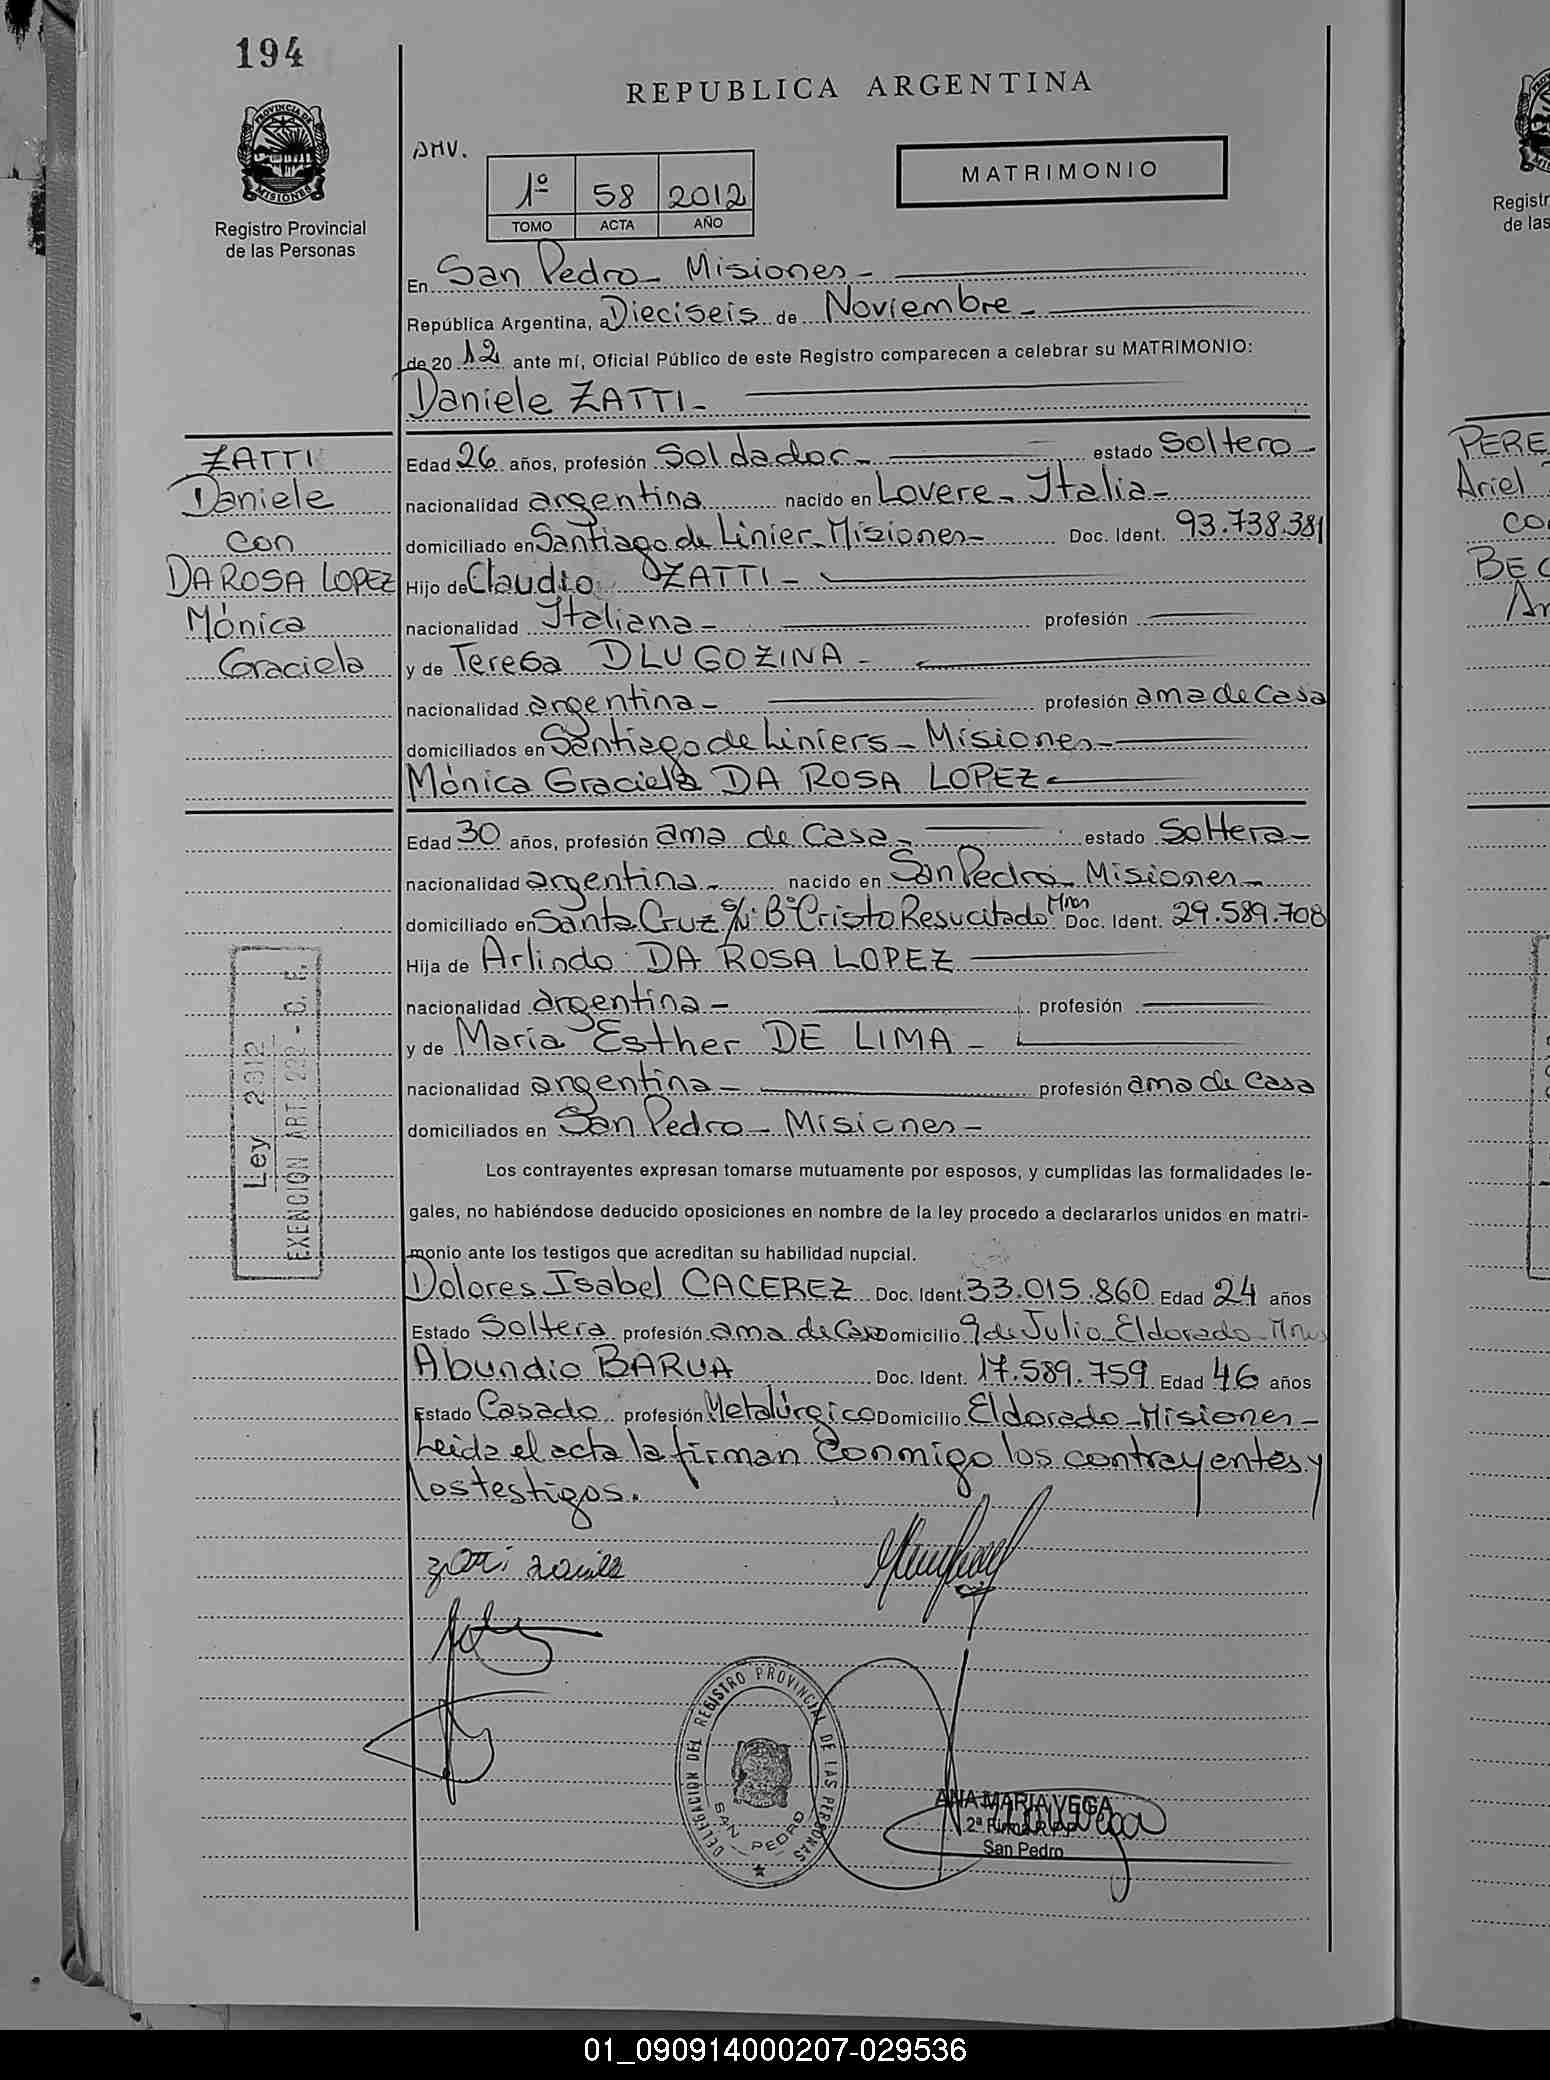 194
REPUBLICA ARGENTINA
PROVINCIA DE
MISIONES
Registro Provincial
de las Personas
AMV.
1º 58 2012
TOMO ACTA AÑO
MATRIMONIO
En San Pedro - Misiones -
República Argentina, a Dieciseis de Noviembre -
de 2012 ante mí, Oficial Público de este Registro comparecen a celebrar su MATRIMONIO:
Daniele ZATTI -
ZATTI
Daniele
con
DA ROSA LOPEZ
Mónica
Graciela
Edad 26 años, profesión Soldador - estado Soltero -
nacionalidad argentina nacido en Lovere - Italia -
domiciliado en Santiago de Linier - Misiones - Doc. Ident. 93.738.381
Hijo de Claudio ZATTI -
nacionalidad Italiana - profesión
y de Teresa DLUGOZINA -
nacionalidad argentina - profesión ama de casa
domiciliados en Santiago de Liniers - Misiones -
Mónica Graciela DA ROSA LOPEZ
Edad 30 años, profesión ama de casa - estado Soltera -
nacionalidad argentina - nacido en San Pedro - Misiones -
domiciliado en Santa Cruz s/Nº Bº Cristo Resucitado Mnes Doc. Ident. 29.589.708
Hija de Arlindo DA ROSA LOPEZ
nacionalidad argentina - profesión
y de María Esther DE LIMA -
nacionalidad argentina - profesión ama de casa
domiciliados en San Pedro - Misiones -
Ley 2312
EXENCION ART. 222 -
Los contrayentes expresan tomarse mutuamente por esposos, y cumplidas las formalidades le-
gales, no habiéndose deducido oposiciones en nombre de la ley procedo a declararlos unidos en matri-
monio ante los testigos que acreditan su habilidad nupcial.
Dolores Isabel CACEREZ Doc. Ident. 33.015.860 Edad 24 años
Estado Soltera profesión ama de casa Domicilio 9 de Julio - Eldorado - Mnes
Abundio BARUA Doc. Ident. 17.589.759 Edad 46 años
Estado Casado profesión Metalúrgico Domicilio Eldorado - Misiones -
Leida el acta la firman conmigo los contrayentes y
los testigos.
DELEGACION DEL REGISTRO PROVINCIAL DE LAS PERSONAS
SAN PEDRO
ANA MARIA VEGA
2ª Firma R.P.P.
San Pedro
Registr
de las
PERE
Ariel
co
BE
01_090914000207-029536